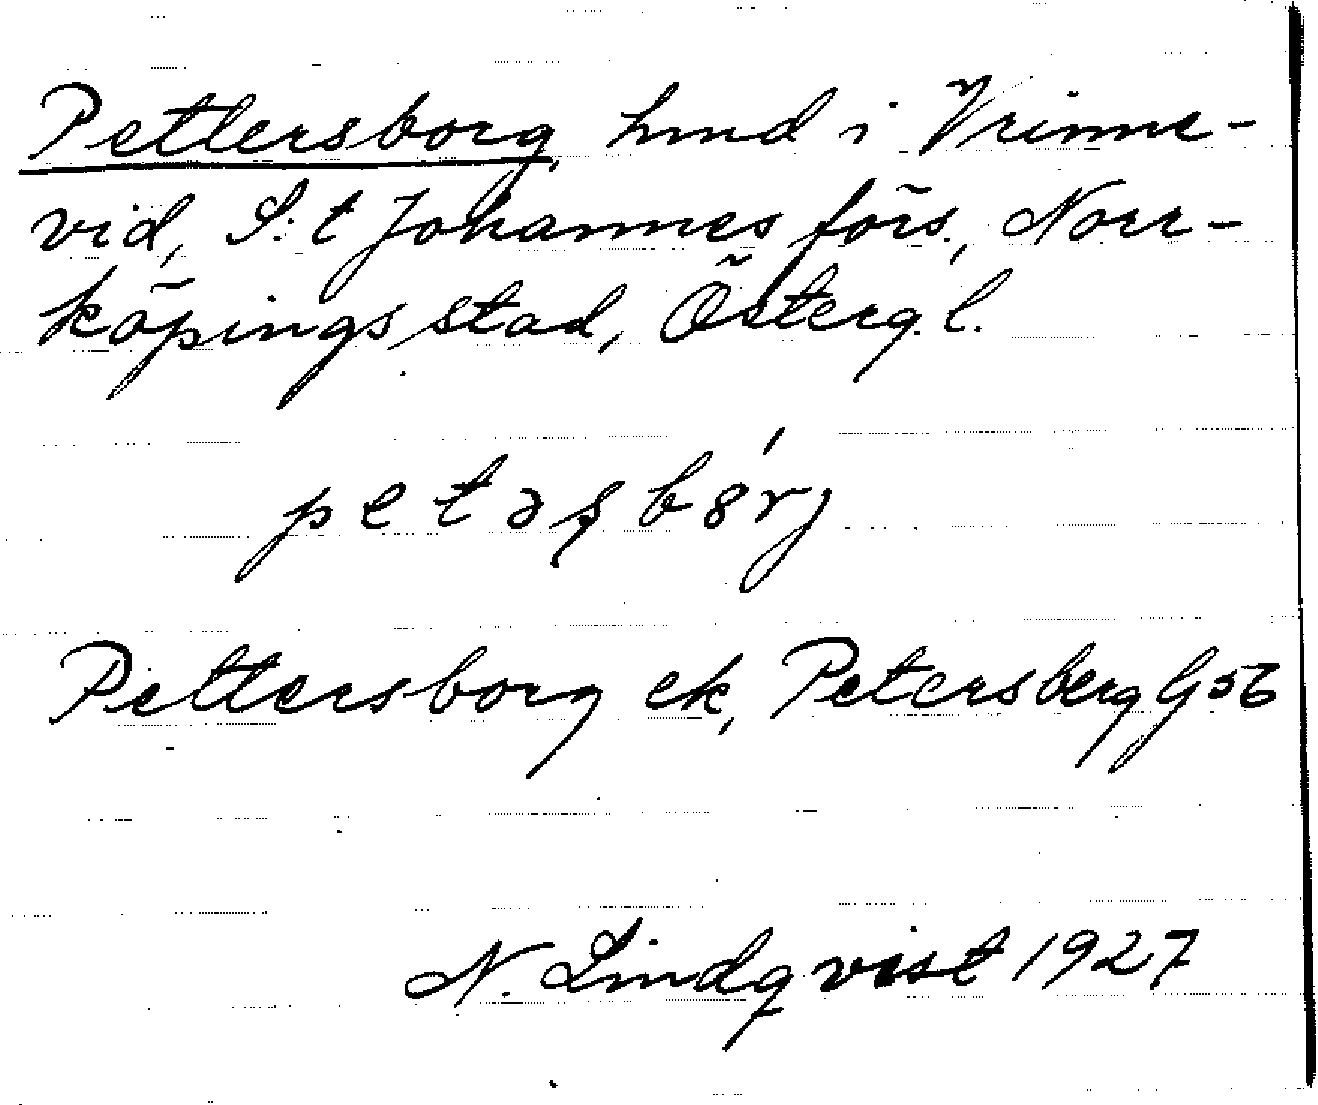 Pettersborg, hmd i Vrinne-
vid, S:t Johannes förs., Norr-
köpings stad, Österg. l.
petəʂbȣ́rj
Pettersborg ek, Petersberg G 56
N. Lindqvist 1927